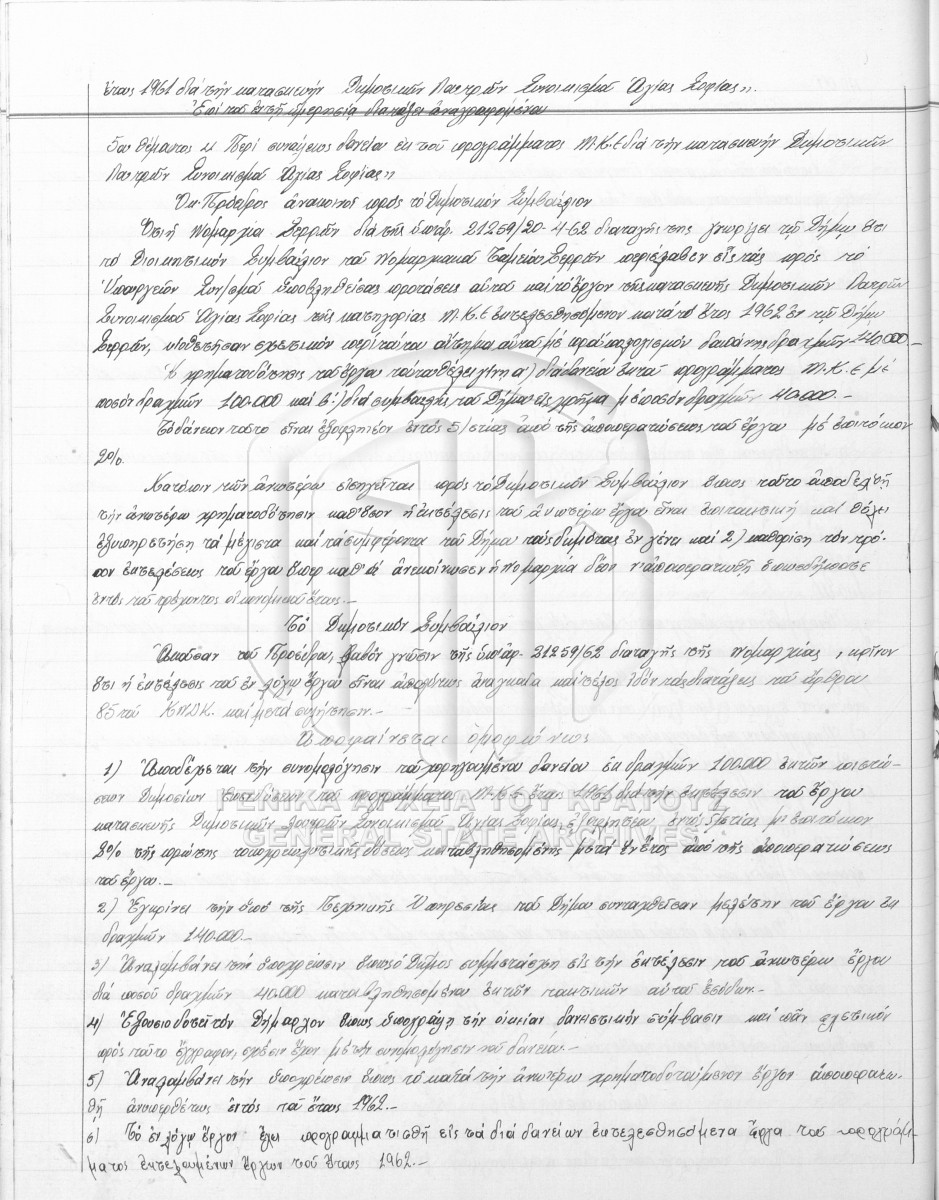 ἔτους 1961 διά τήν κατασκευήν Δημοτικῶν Λουτρῶν Συνοικισμοῦ Ἁγίας Σοφίας".
Ἐπί τοῦ ἐν τῇ ἡμερησίᾳ διατάξει ἀναγραφομένου
5ου θέματος " Περί συνάψεως δανείου ἐκ τοῦ προγράμματος Μ.Κ.Ε διά τήν κατασκευήν Δημοτικῶν
Λουτρῶν Συνοικισμοῦ Ἁγίας Σοφίας"
Ὁ κ. Πρόεδρος ἀνακοινοῖ πρός τό Δημοτικόν Συμβούλιον
Ὅτι ἡ Νομαρχία Σερρῶν διά τῆς ὑπ' ἀρ. 21259/20-4-62 διαταγῆς της γνωρίζει τῷ Δήμῳ ὅτι
τό Διοικητικόν Συμβούλιον τοῦ Νομαρχιακοῦ Ταμείου Σερρῶν περιέλαβεν εἰς τάς πρός τό
Ὑπουργεῖον Συν/σμοῦ ὑποβληθείσας προτάσεις αὐτοῦ καί τό ἔργον τῆς κατασκευῆς Δημοτικῶν Λουτρῶν
Συνοικισμοῦ Ἁγίας Σοφίας τῆς κατηγορίας Μ.Κ.Ε ἐκτελεσθησόμενον κατά τό ἔτος 1962 ἐν τῷ Δήμῳ
Σερρῶν, υἱοθετῆσαν σχετικόν περί τούτου αἴτημα αὐτοῦ μέ προϋπολογισμόν δαπάνης δραχμῶν 140.000.-
Ἡ χρηματοδότησις τοῦ ἔργου τούτου θέλει γίνη α) διά δανείου ἐκ τοῦ προγράμματος Μ.Κ.Ε μέ
ποσόν δραχμῶν 100.000 καί β) διά συμβολῆς τοῦ Δήμου εἰς χρῆμα μέ ποσόν δραχμῶν 40.000.-
Τό δάνειον τοῦτο εἶναι ἐξοφλητέον ἐντός 5/ετίας ἀπό τῆς ἀποπερατώσεως τοῦ ἔργου μέ ἐπιτόκιον
2%.
Κατόπιν τῶν ἀνωτέρω εἰσηγεῖται πρός τό Δημοτικόν Συμβούλιον ὅπως τοῦτο ἀποδεχθῇ
τήν ἀνωτέρω χρηματοδότησιν καθ' ὅσον ἡ ἐκτέλεσις τοῦ ἀνωτέρω ἔργου εἶναι ἐπιτακτική καί θέλει
ἐξυπηρετήση τά μέγιστα καί τά συμφέροντα τοῦ Δήμου τούς δημότας ἐν γένει καί 2) καθορίση τόν τρό-
πον ἐκτελέσεως τοῦ ἔργου ὅπερ καθ' ἅ ἀνεκοίνωσεν ἡ Νομαρχία δέον ν' ἀποπερατωθῇ
ἐντός τοῦ τρέχοντος οἰκονομικοῦ ἔτους.-
Τό Δημοτικόν Συμβούλιον
Ἀκοῦσαν τοῦ Προέδρου, λαβόν γνῶσιν τῆς ὑπ' ἀρ. 21259/62 διαταγῆς τῆς Νομαρχίας, κρῖνον
ὅτι ἡ ἐκτέλεσις τοῦ ἐν λόγῳ ἔργου εἶναι ἀπολύτως ἀναγκαία καί τέλος ἰδόν τάς διατάξεις τοῦ ἄρθρου
85 τοῦ Κ.Π.Δ.Κ. καί μετά συζήτησιν.-
Ἀποφαίνεται ὁμοφώνως
1) Ἀποδέχεται τήν συνομολόγησιν τοῦ χορηγουμένου δανείου ἐκ δραχμῶν 100.000 ἐκ τῶν πιστώ-
σεων Δημοσίων Ἐπενδύσεων τοῦ προγράμματος Μ.Κ.Ε ἔτους 1961 διά τήν ἐκτέλεσιν τοῦ ἔργου
κατασκευῆς Δημοτικῶν Λουτρῶν Συνοικισμοῦ Ἁγίας Σοφίας ἐξοφλητέου ἐντός 5/ετίας μέ ἐπιτόκιον
2% τῆς πρώτης τοκοχρεωλυτικῆς δόσεως καταβληθησομένης μετά ἕν ἔτος ἀπό τῆς ἀποπερατώσεως
τοῦ ἔργου.-
2) Ἐγκρίνει τήν ὑπό τῆς Τεχνικῆς Ὑπηρεσίας τοῦ Δήμου συνταχθεῖσαν μελέτην τοῦ ἔργου ἐκ
δραχμῶν 140.000.-
3) Ἀναλαμβάνει τήν ὑποχρέωσιν ὅπως ὁ Δῆμος συμμετάσχῃ εἰς τήν ἐκτέλεσιν τοῦ ἀνωτέρω ἔργου
διά ποσοῦ δραχμῶν 40.000 καταβληθησομένου ἐκ τῶν τακτικῶν αὐτοῦ ἐσόδων.-
4) Ἐξουσιοδοτεῖ τόν Δήμαρχον ὅπως ὑπογράψῃ τήν οἰκείαν δανειστικήν σύμβασιν καί πᾶν σχετικόν
πρός τοῦτο ἔγγραφον, σχέσιν ἔχον μέ τήν συνομολόγησιν τοῦ δανείου.-
5) Ἀναλαμβάνει τήν ὑποχρέωσιν ὅπως τό κατά τήν ἀνωτέρω χρηματοδοτούμενον ἔργον ἀποπερατω-
θῇ ἀνυπερθέτως ἐντός τοῦ ἔτους 1962.-
6) Τό ἐν λόγῳ ἔργον ἔχει προγραμματισθῆ εἰς τά διά δανείων ἐκτελεσθησόμενα ἔργα τοῦ προγράμ-
ματος ἐκτελουμένων ἔργων τοῦ ἔτους 1962.-
ΓΕΝΙΚΑ ΑΡΧΕΙΑ ΤΟΥ ΚΡΑΤΟΥΣ
GENERAL STATE ARCHIVES